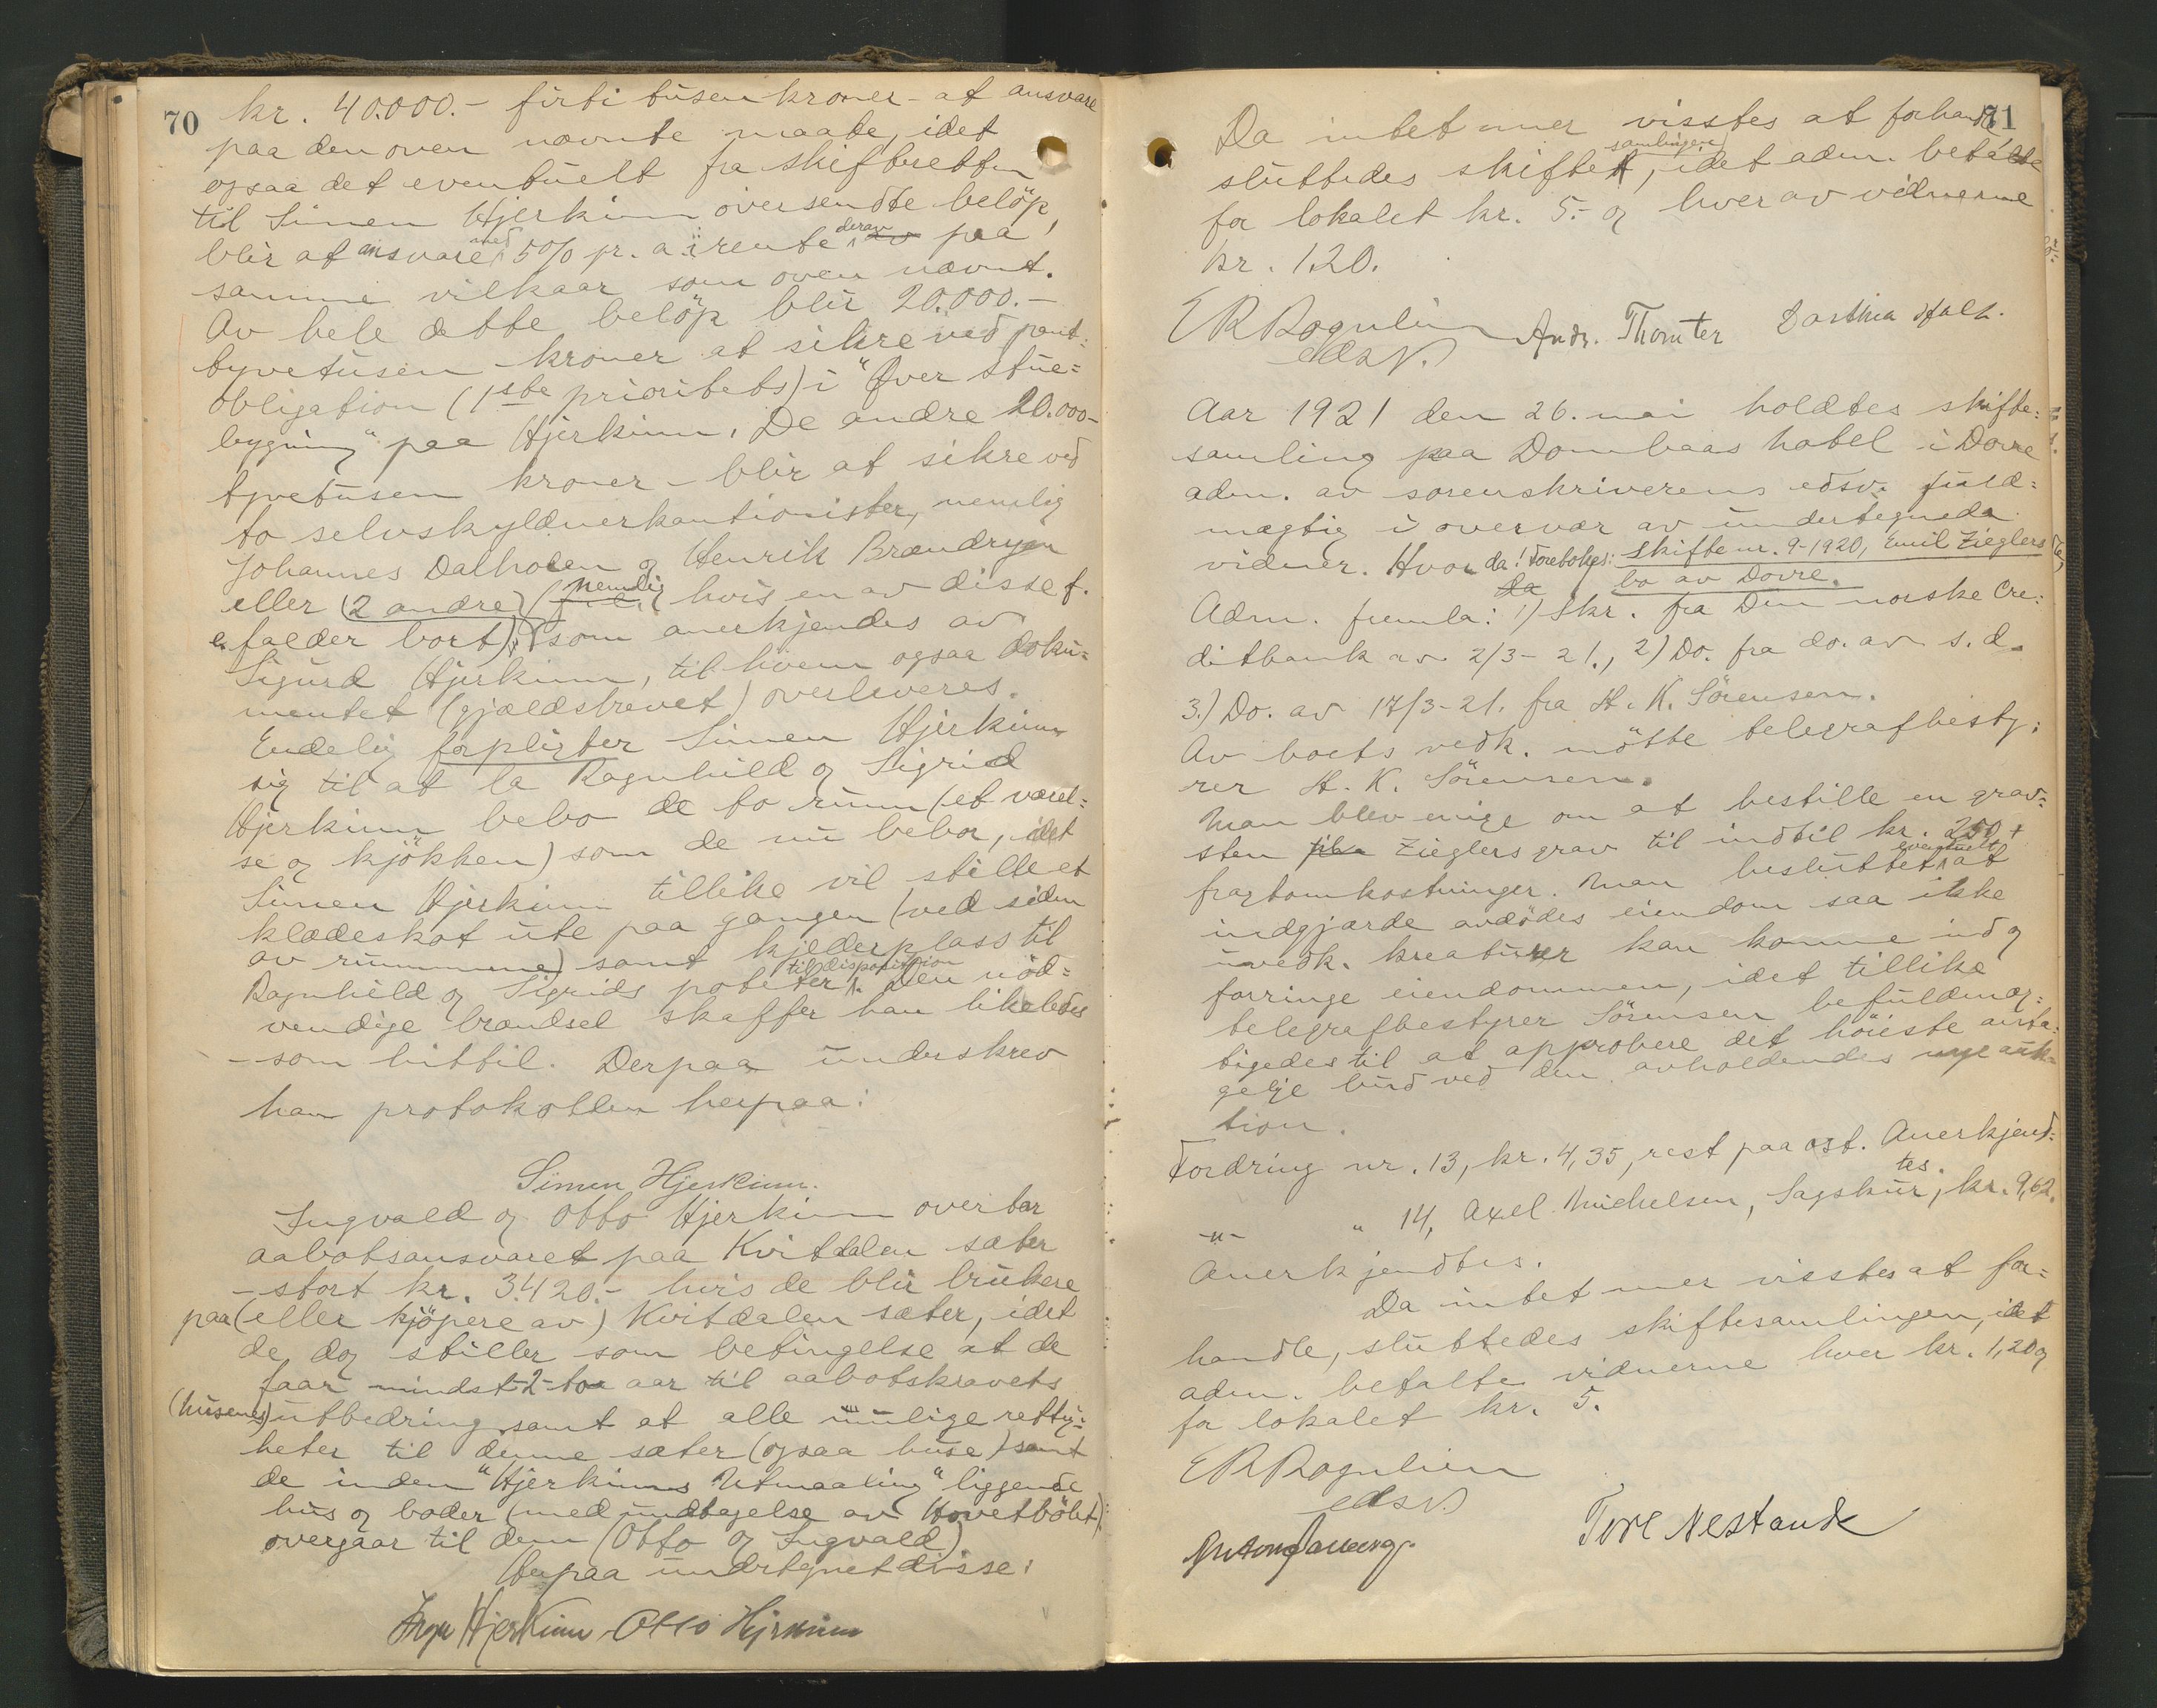 70
kr. 40.000.- firti tusen kroner - at ansvare
paa den oven nævnte maate, idet
ogsaa det eventuelt fra skifteretten
til Simen Hjerkinn oversendte belöp,
blir at ansvare med 5% pr. a. i rente derav paa
samme vilkaar som oven nævnt.
Av hele dette belöp blir 20.000.-
tyvetusen - kroner at sikre ved pant-
obligation (1ste prioritets) i "Øver stue-
bygning" paa Hjerkinn. De andre 20.000-
tyvetusen kroner - blir at sikre ved
to selvskyldnerkautionister, nemlig
Johannes Dalholen og Henrik Brændryen
eller (2 andre) (nemlig hvis en av disse f.
e. falder bort), som anerkjendes av
Sigurd Hjerkinn, til hvem ogsaa doku-
mentet (gjældsbrevet) overleveres.
Endelig forpligter Simen Hjerkinn
sig til at la Ragnhild og Sigrid
Hjerkinn bebo de to rum (et værel-
se og kjökken) som de nu bebor, idet
Simen Hjerkinn tillike vil stille et
klædeskot ute paa gangen (ved siden
av rummene) samt kjelderplass til
Ragnhild og Sigrids poteter til disposition. Den nöd-
vendige brændsel skaffer han likeledes
- som hittil. Derpaa underskrev
han protokollen herpaa:
Simen Hjerkinn.
Ingvald og Otto Hjerkinn overtar
aabotsansvaret paa Kvitdalen sæter
- stort kr. 3420.- hvis de blir brukere
paa (eller kjöpere av) Kvitdalen sæter, idet
de dog stiller som betingelse at de
faar mindst -2- to aar til aabotskravets
(husenes) utbedring samt at alle mulige rettig-
heter til denne sæter (ogsaa huse) samt
de inden "Hjerkinns Utmaaling" liggende
hus og boder (med undtagelse av Hovetbölet)
overgaar til dem (Otto og Ingvald).
Herpaa undertegnet disse:
Ingv Hjerkinn Otto Hjerkinn
71
Da intet mer visstes at forhandle,
sluttedes skiftesamlingen, idet adm. betalte
for lokalet kr. 5.- og hver av vidnerne
kr. 1.20.
E R Rogulien Andr. Thomter Dorthia Hole.
edsv.
Aar 1921 den 26. mai holdtes skifte-
samling paa Dombaas hotel i Dovre
adm. av sorenskriverens edsv. fuld-
mægtig i overvær av undertegnede
vidner. Hvor da! Foretokges: Skifte nr. 9-1920, Emil Zieglers
bo av Dovre.
Adm. fremla: 1) Skr. fra Den norske Cre-
ditbank av 2/3-21., 2) Do. fra do. av s. d.
3.) Do. av 17/3-21. fra H. K. Sörensen.
Av boets vedk. mötte telegrafbesty-
rer H. K. Sörensen.
Man blev enige om at bestille en grav-
sten Zieglers grav til indtil kr. 250 +
fragtomkostninger. Man besluttet eventuelt at
indgjærde avdödes eiendom saa ikke
uvedk. kreaturer kan komme ind og
forringe eiendommen, idet tillike
telegrafbestyrer Sörensen befuldmæg-
tigedes til at approbere det höieste anta-
gelige bud ved den avholdendes nye auk-
tion.
Fordring nr. 13, kr. 4,35, rest paa ost. Anerkjend-
tes.
-"- " 14, Axel Michelsen, Sagskur, kr. 9,62.
Anerkjendtes.
Da intet mer visstes at for-
handle, sluttedes skiftesamlingen, idet
adm. betalte vidnerne hver kr. 1,20 og
for lokalet kr. 5.
E R Rogulien
edsv.
Tore Nestande